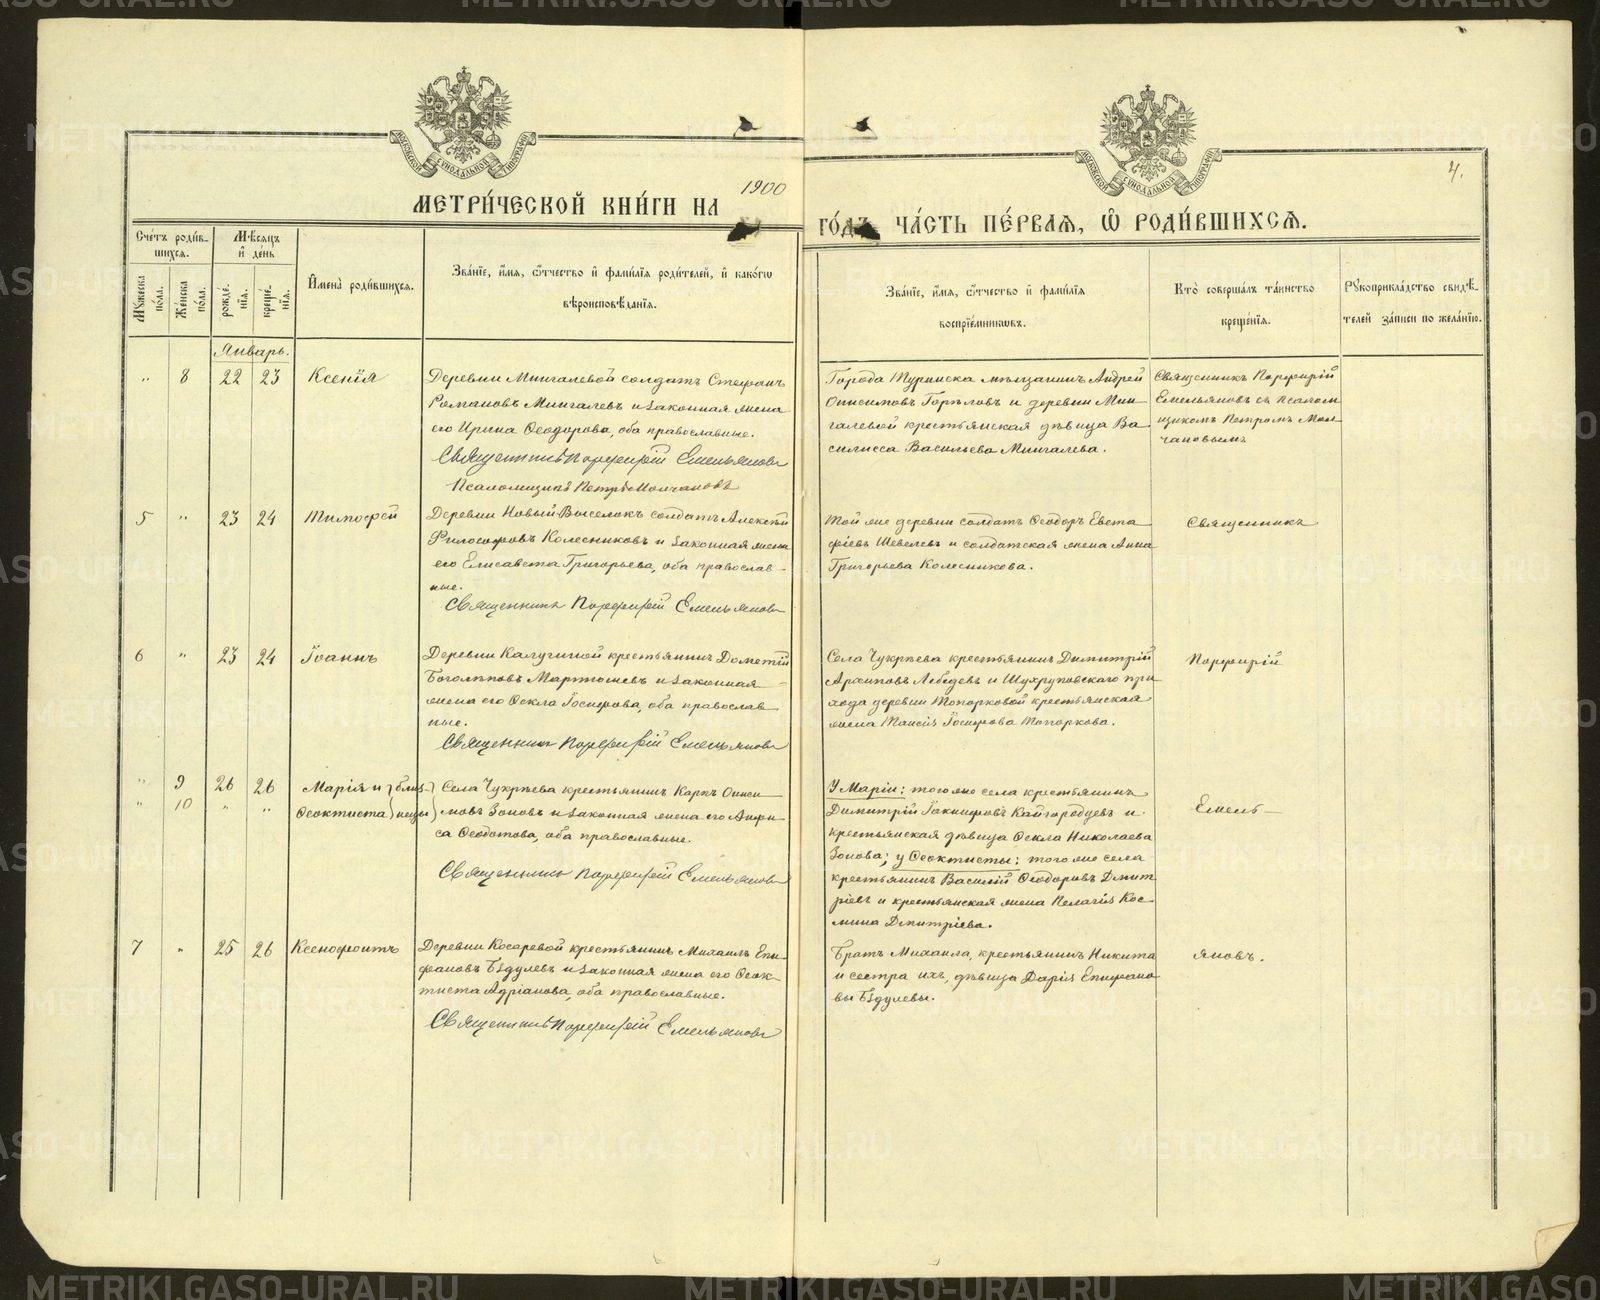 METRIKI.GASO-URAL.RU
МОСКОВСКОЙ СѴНОДАЛЬНОЙ ТИПОГРАФІИ
МЕТРИ́ЧЕСКОЙ КНИ́ГИ НА 1900
ГО́ДЪ ЧА́СТЬ ПЕ́РВАЯ, Ѿ РОДИ́ВШИХСЯ.
4.
Сче́тъ роди́в-
шихся.
Мѣ́сяцъ
и҆ де́нь
Мꙋ́жеска
по́ла.
Же́нска
по́ла.
рожде́-
нїѧ.
креще́-
нїѧ.
И҆мена̀ роди́вшихся.
Зва́нїе, и҆́мѧ, ѻ҆́тчество и҆ фами́лїѧ роди́телей, и҆ како́гѡ
вѣроисповѣ́данїѧ.
Зва́нїе, и҆́мѧ, ѻ҆́тчество и҆ фами́лїѧ
воспрїе́мникѡвъ.
Кто̀ соверша́лъ та́инство
креще́нїѧ.
Рꙋкоприкла́дство свидѣ́-
телей за́писи по жела́нїю.
Январь.
" 8 22 23 Ксенія
Деревни Мингалевой солдатъ Стефанъ
Романовъ Мингалевъ и законная жена
его Ирина Ѳеодорова, оба православные.
Священникъ Порфирій Емельяновъ
Псаломщикъ Петръ Молчановъ
Города Туринска мѣщанинъ Андрей
Онисимовъ Горѣловъ и деревни Мин-
галевой крестьянская дѣвица Ва-
силисса Васильева Мингалева.
Священникъ Порфирій
Емельяновъ съ псалом-
щикомъ Петромъ Мол-
чановымъ
5 " 23 24 Тимофей
Деревни Новый-Выселокъ солдатъ Алексѣй
Философовъ Колесниковъ и законная жена
его Елисавета Григорьева, оба православ-
ные.
Священникъ Порфирій Емельяновъ
Той же деревни солдатъ Ѳеодоръ Евста-
фіевъ Шевелевъ и солдатская жена Анна
Григорьева Колесникова.
Священникъ
6 " 23 24 Іоаннъ
Деревни Калугиной крестьянинъ Дометій
Боголѣповъ Мартюшевъ и законная
жена его Ѳекла Іосифова, оба православ-
ные.
Священникъ Порфирій Емельяновъ
Села Чукрѣева крестьянинъ Димитрій
Архиповъ Лебедевъ и Шухруповскаго при-
хода деревни Топорковой крестьянская
жена Таисія Іосифова Топоркова.
Порфирій
" 9 26 26 Марія и } близ-
" 10 " " Ѳеоктиста } нецы
Села Чукрѣева крестьянинъ Карпъ Ониси-
мовъ Зоновъ и законная жена его Анфи-
са Ѳеодотова, оба православные.
Священникъ Порфирій Емельяновъ
У Маріи: того же села крестьянинъ
Димитрій Іакинфовъ Кайгородцевъ и
крестьянская дѣвица Ѳекла Николаева
Зонова; у Ѳеоктисты: того же села
крестьянинъ Василій Ѳеодоровъ Дмит-
ріевъ и крестьянская жена Пелагія Кос-
мина Дмитріева.
Емель-
7 " 25 26 Ксенофонтъ
Деревни Косаревой крестьянинъ Михаилъ Епи-
фановъ Бздулевъ и законная жена его Ѳеок-
тиста Адріанова, оба православные.
Священникъ Порфирій Емельяновъ
Братъ Михаила, крестьянинъ Никита
и сестра ихъ, дѣвица Дарія Епифано-
вы Бздулевы.
яновъ.